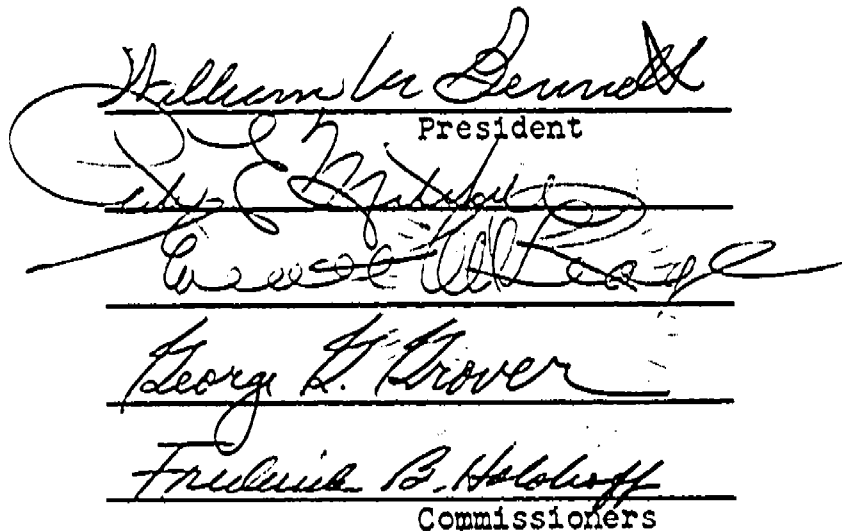 William M Bennett
President
Peter E. Mitchell
George G. Grover
Frederick B. Holoboff
Commissioners